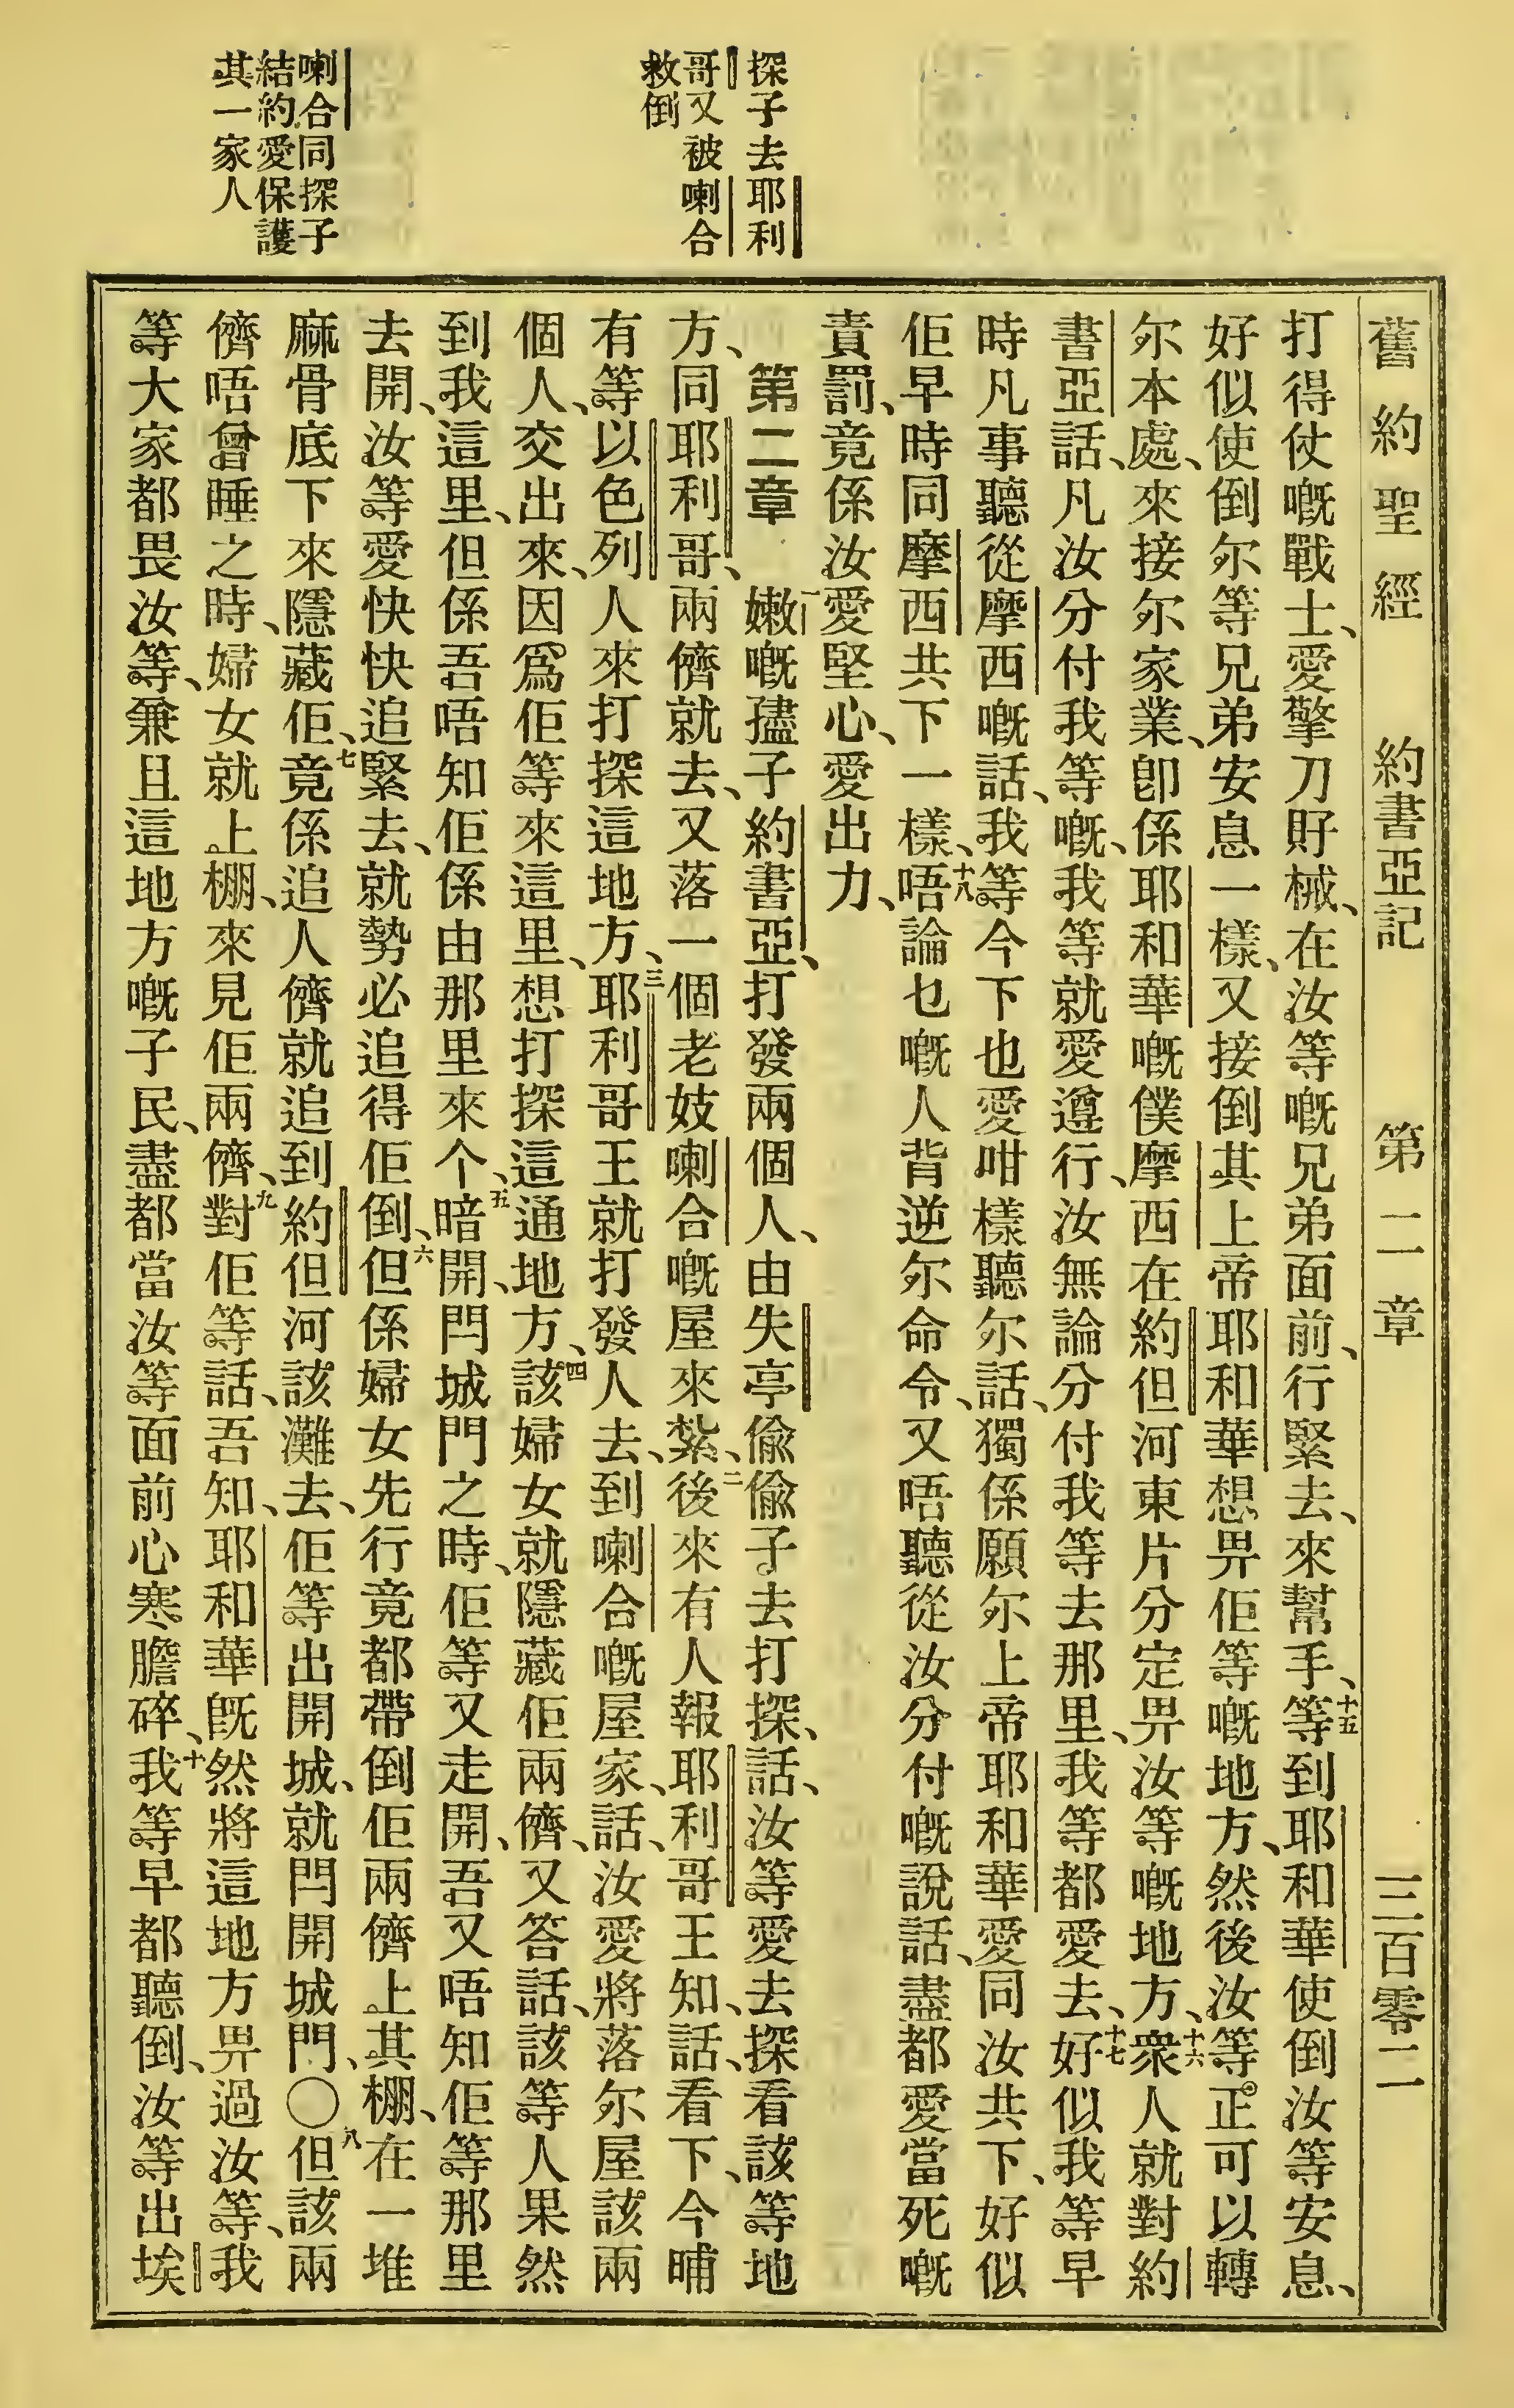 舊約聖經　約書亞記　第二章　三百零二
探子去耶利
哥又被喇合
救倒
喇合同探子
結約愛保護
其一家人
打得仗嘅戰士、愛擎刀財械、在汝等嘅兄弟面前、行緊去、來幫手、十五等到耶和華使倒汝等安息、
好似使倒尔等兄弟安息一樣、又接倒其上帝耶和華想畀佢等嘅地方、然後汝等正可以轉
尔本處、來接尔家業、卽係耶和華嘅僕摩西在約但河東片分定畀汝等嘅地方、十六衆人就對約
書亞話、凡汝分付我等嘅、我等就愛遵行、汝無論分付我等去那里、我等都愛去、十七好似我等早
時凡事聽從摩西嘅話、我等今下也愛咁樣聽尔話、獨係願尔上帝耶和華愛同汝共下、好似
佢早時同摩西共下一樣、十八唔論乜嘅人背逆尔命令、又唔聽從汝分付嘅說話、盡都愛當死嘅
責罰、竟係汝愛堅心、愛出力、
第二章　一嫩嘅孻子約書亞、打發兩個人、由失亭偸偸子去打探、話、汝等愛去探看該等地
方、同耶利哥、兩儕就去、又落一個老妓喇合嘅屋來紮、二後來有人報耶利哥王知、話、看下、今晡
有等以色列人來打探這地方、三耶利哥王就打發人去、到喇合嘅屋家、話、汝愛將落尔屋該兩
個人、交出來、因爲佢等來這里、想打探這通地方、四該婦女就隱藏佢兩儕、又答話、該等人果然
到我這里、但係吾唔知佢係由那里來个、五暗開、閂城門之時、佢等又走開、吾又唔知佢等那里
去開、汝等愛快快追緊去、就勢必追得佢倒、六但係婦女先行竟都帶倒佢兩儕上其棚、在一堆
麻骨底下來隱藏佢、七竟係追人儕就追到約但河該灘去、佢等出開城、就閂開城門、〇八但該兩
儕唔曾睡之時、婦女就上棚、來見佢兩儕、九對佢等話、吾知、耶和華旣然將這地方畀過汝等、我
等大家都畏汝等、兼且這地方嘅子民、盡都當汝等面前心寒膽碎、十我等早都聽倒、汝等出埃